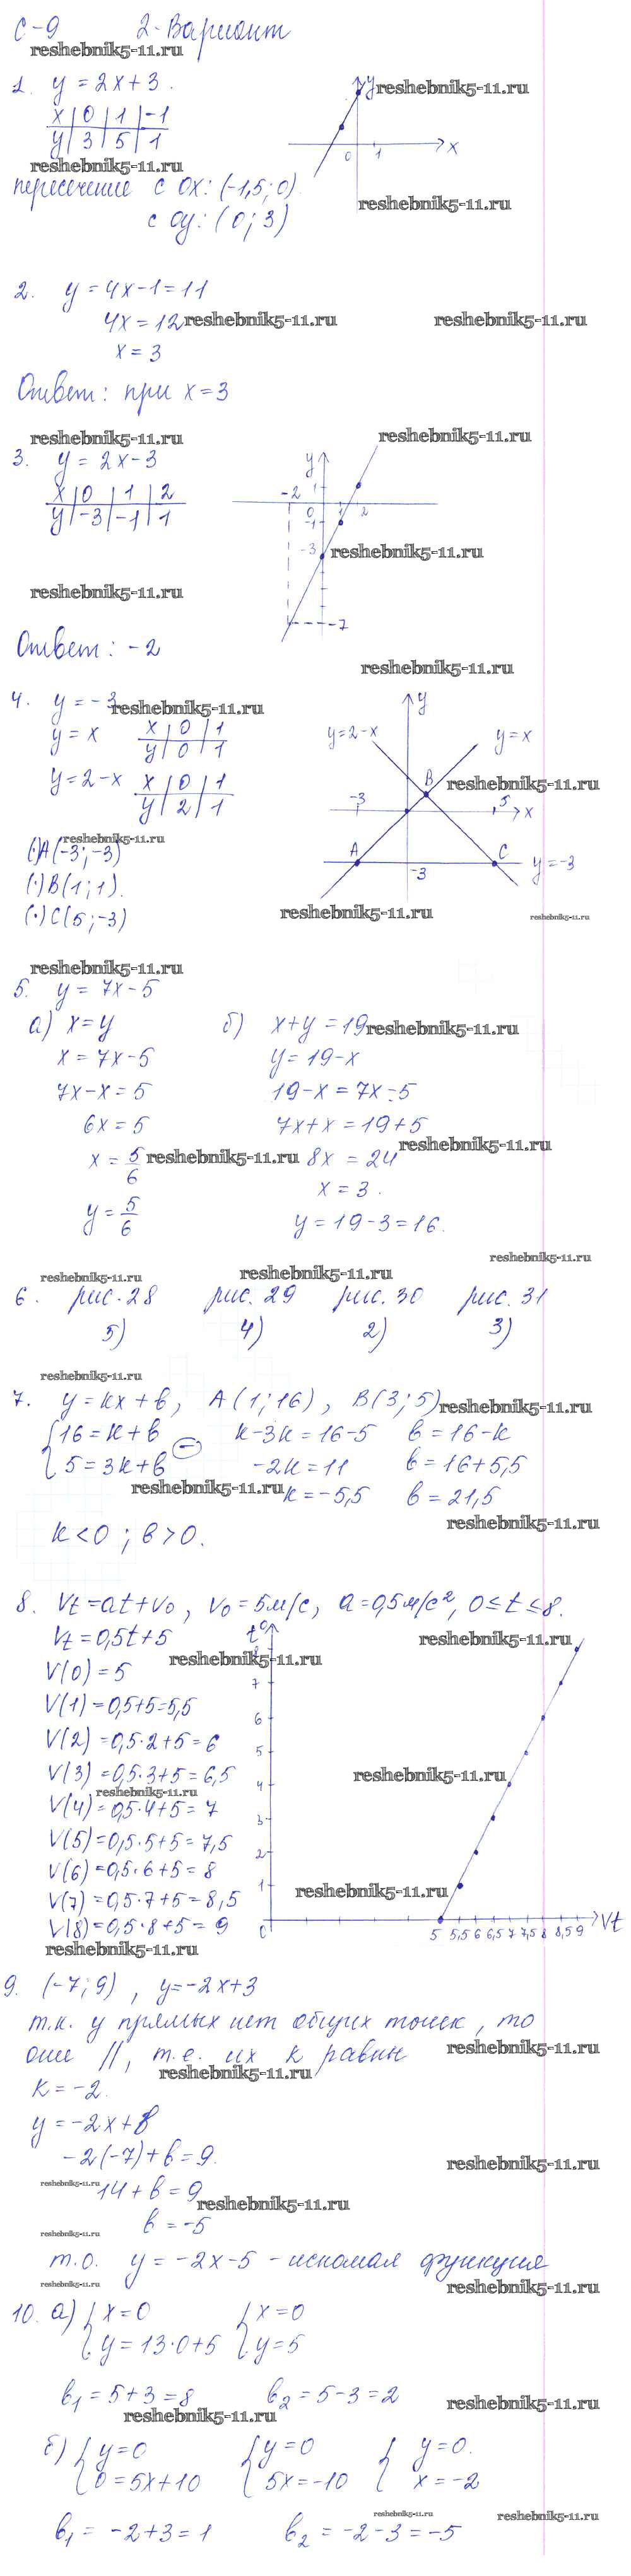 С-9 2-Вариант
reshebnik5-11.ru
1. y = 2x + 3.
x | 0 | 1 | -1
y | 3 | 5 | 1
y
reshebnik5-11.ru
0 1 x
reshebnik5-11.ru
пересечение с ОХ: (-1,5; 0)
reshebnik5-11.ru
с Оу: (0; 3)
2. y = 4x - 1 = 11
4x = 12
reshebnik5-11.ru reshebnik5-11.ru
x = 3
Ответ: при x = 3
reshebnik5-11.ru reshebnik5-11.ru
3. y = 2x - 3
x | 0 | 1 | 2
y | -3 | -1 | 1
y
1
-2 0 1 2
-1
-3
reshebnik5-11.ru
reshebnik5-11.ru
-7
Ответ: -2
reshebnik5-11.ru
4. y = -3
reshebnik5-11.ru
y = x x | 0 | 1
y | 0 | 1
y = 2-x x | 0 | 1
y | 2 | 1
y
y=2-x y=x
B
reshebnik5-11.ru
-3 5 x
A C
-3 y=-3
reshebnik5-11.ru
(·)A(-3; -3)
(·)B(1; 1).
(·)C(5; -3)
reshebnik5-11.ru reshebnik5-11.ru
reshebnik5-11.ru
5. y = 7x - 5
а) x = y
x = 7x - 5
7x - x = 5
6x = 5
x = 5/6
y = 5/6
б) x + y = 19
reshebnik5-11.ru
y = 19 - x
19 - x = 7x - 5
7x + x = 19 + 5
reshebnik5-11.ru
reshebnik5-11.ru
8x = 24
x = 3.
y = 19 - 3 = 16.
reshebnik5-11.ru
reshebnik5-11.ru reshebnik5-11.ru
6. рис. 28 рис. 29 рис. 30 рис. 31
5) 4) 2) 3)
reshebnik5-11.ru
7. y = kx + в, A(1; 16), B(3; 5)
reshebnik5-11.ru
{16 = k + в k - 3k = 16 - 5 в = 16 - k
{5 = 3k + в (-) -2k = 11 в = 16 + 5,5
reshebnik5-11.ru
k = -5,5 в = 21,5
reshebnik5-11.ru
k < 0; в > 0.
8. Vt = at + v₀, v₀ = 5м/с, a = 0,5м/с², 0 ≤ t ≤ 8.
Vt = 0,5t + 5
reshebnik5-11.ru reshebnik5-11.ru
V(0) = 5
V(1) = 0,5 + 5 = 5,5
V(2) = 0,5·2 + 5 = 6
V(3) = 0,5·3 + 5 = 6,5
reshebnik5-11.ru
V(4) = 0,5·4 + 5 = 7
V(5) = 0,5·5 + 5 = 7,5
V(6) = 0,5·6 + 5 = 8
V(7) = 0,5·7 + 5 = 8,5
V(8) = 0,5·8 + 5 = 9
reshebnik5-11.ru
t°
8
7
6
5
reshebnik5-11.ru
4
3
2
1
reshebnik5-11.ru
0 5 5,5 6 6,5 7 7,5 8 8,5 9 Vt
9. (-7; 9), y = -2x + 3
т.к. у прямых нет общих точек, то
они //, т.е. их k равны
reshebnik5-11.ru
reshebnik5-11.ru
k = -2.
y = -2x + в
-2(-7) + в = 9.
reshebnik5-11.ru
reshebnik5-11.ru
14 + в = 9
reshebnik5-11.ru
в = -5
reshebnik5-11.ru
т.о. y = -2x - 5 - искомая функция
reshebnik5-11.ru
reshebnik5-11.ru
10. а) {x = 0 {x = 0
{y = 13·0 + 5 {y = 5
в₁ = 5 + 3 = 8 в₂ = 5 - 3 = 2
reshebnik5-11.ru
reshebnik5-11.ru
б) {y = 0 {y = 0 {y = 0.
{0 = 5x + 10 {5x = -10 {x = -2
reshebnik5-11.ru reshebnik5-11.ru
в₁ = -2 + 3 = 1 в₂ = -2 - 3 = -5